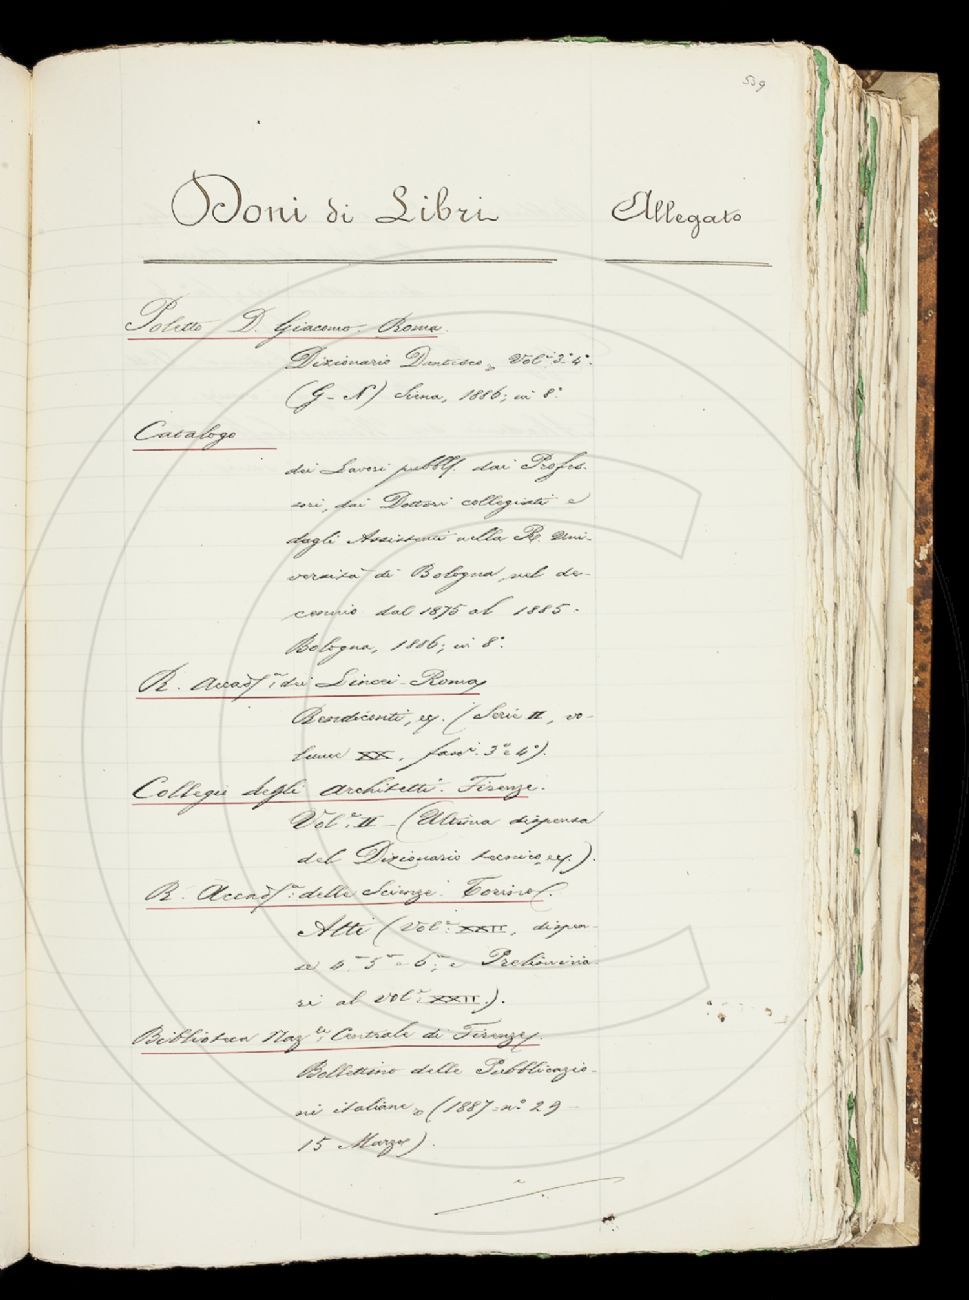 539
Doni di Libri
Allegato
Poletto D. Giacomo. Roma.
Dizionario Dantesco, Vol.i 3.° 4.°
(G-N) Siena, 1886; in 8.°
Catalogo
dei Lavori pubbl. dai Profes-
sori, dai Dottori collegiati e
dagli Assistenti nella R. Uni-
versità di Bologna, nel de-
cennio dal 1875 al 1885-
Bologna, 1886; in 8.°
R. Accad.a dei Lincei-Roma
Rendiconti, (Serie II, vo-
lume XX, fasc.i 3.° e 4.°).
Collegio degli Architetti. Firenze.
Vol.e II-(Ultima dispensa
del Dizionario tecnico).
R. Accad.a delle Scienze. Torino.
Atti (Vol.e XXII, dispen-
se 4.a 5.a e 6.a; e Preliminа-
ri al Vol.e XXII.).
Biblioteca Naz.le Centrale di Firenze.
Bollettino delle Pubblicazio-
ni italiane (1887-n.° 29-
15 Marzo).